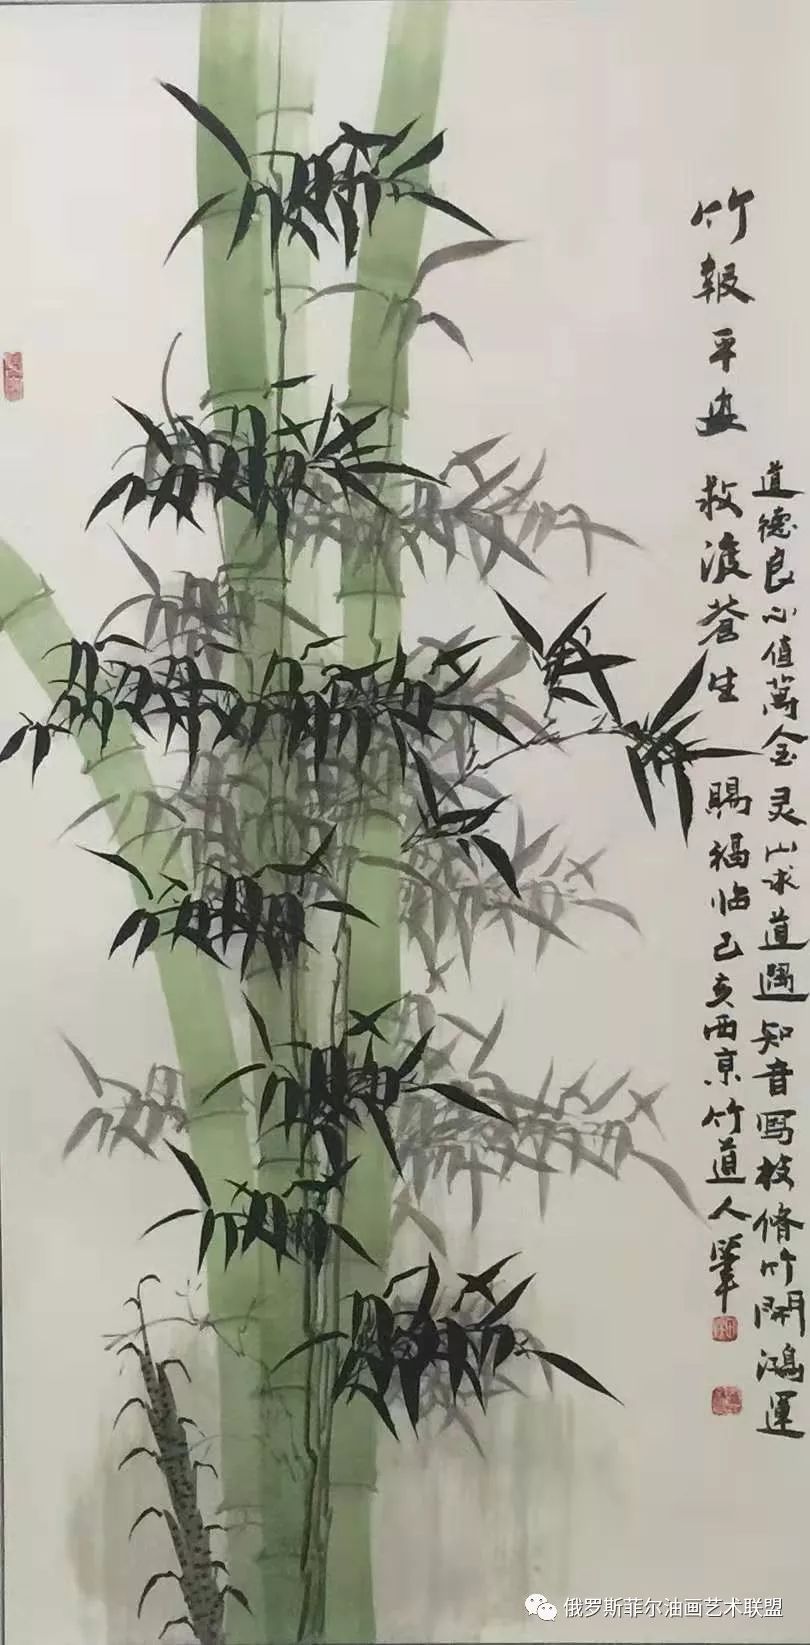 道德良心值萬金灵山求道遇知音寫枝脩竹開鴻運
竹報平安 救渡蒼生 賜福临己亥西京竹道人筆
俄罗斯菲尔油画艺术联盟